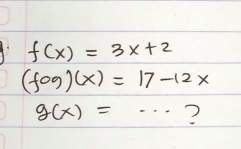 f(x) = 3x+2
(fog)(x) = 17-12x
g(x) = ... ?